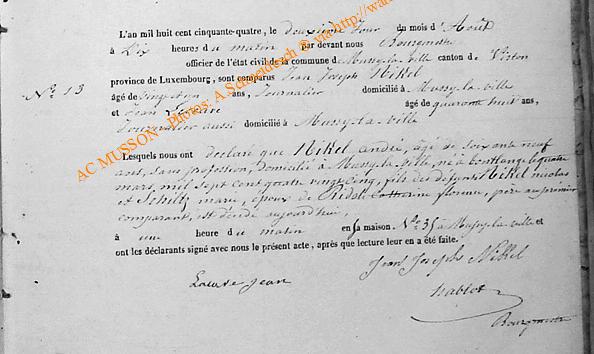 L'an mil huit cent cinquante-quatre, le deuxième jour du mois d'Août
à dix heures du matin par devant nous Bourgmestre
officier de l'état civil de la commune de Mussy-la-ville canton de Virton
province de Luxembourg, sont comparus Jean Joseph Nikel
N° 13
âgé de ans, Journalier domicilié à Mussy-la-ville
et Jean âgé de quarante huit ans,
Journalier aussi domicilié à Mussy-la-ville
Lesquels nous ont déclaré que Nikel andré, âgé de soixante neuf
ans, sans profession, domicilié à Mussy-la-ville, né à le quatre
mars, mil sept cent quatre vingt cinq, fils des défunts Nikel nicolas
et Schiltz marie, époux de Catherine florence, père au premier
comparant, est décédé aujourd'hui,
à une heure du matin en sa maison. N° 35 à Mussy-la-ville et
ont les déclarants signé avec nous le présent acte, après que lecture leur en a été faite.
Jean Joseph Nikel
Jean
nablot
Bourgmestre
AC MUSSON - Photos: A.Schneidesch ® via http://war